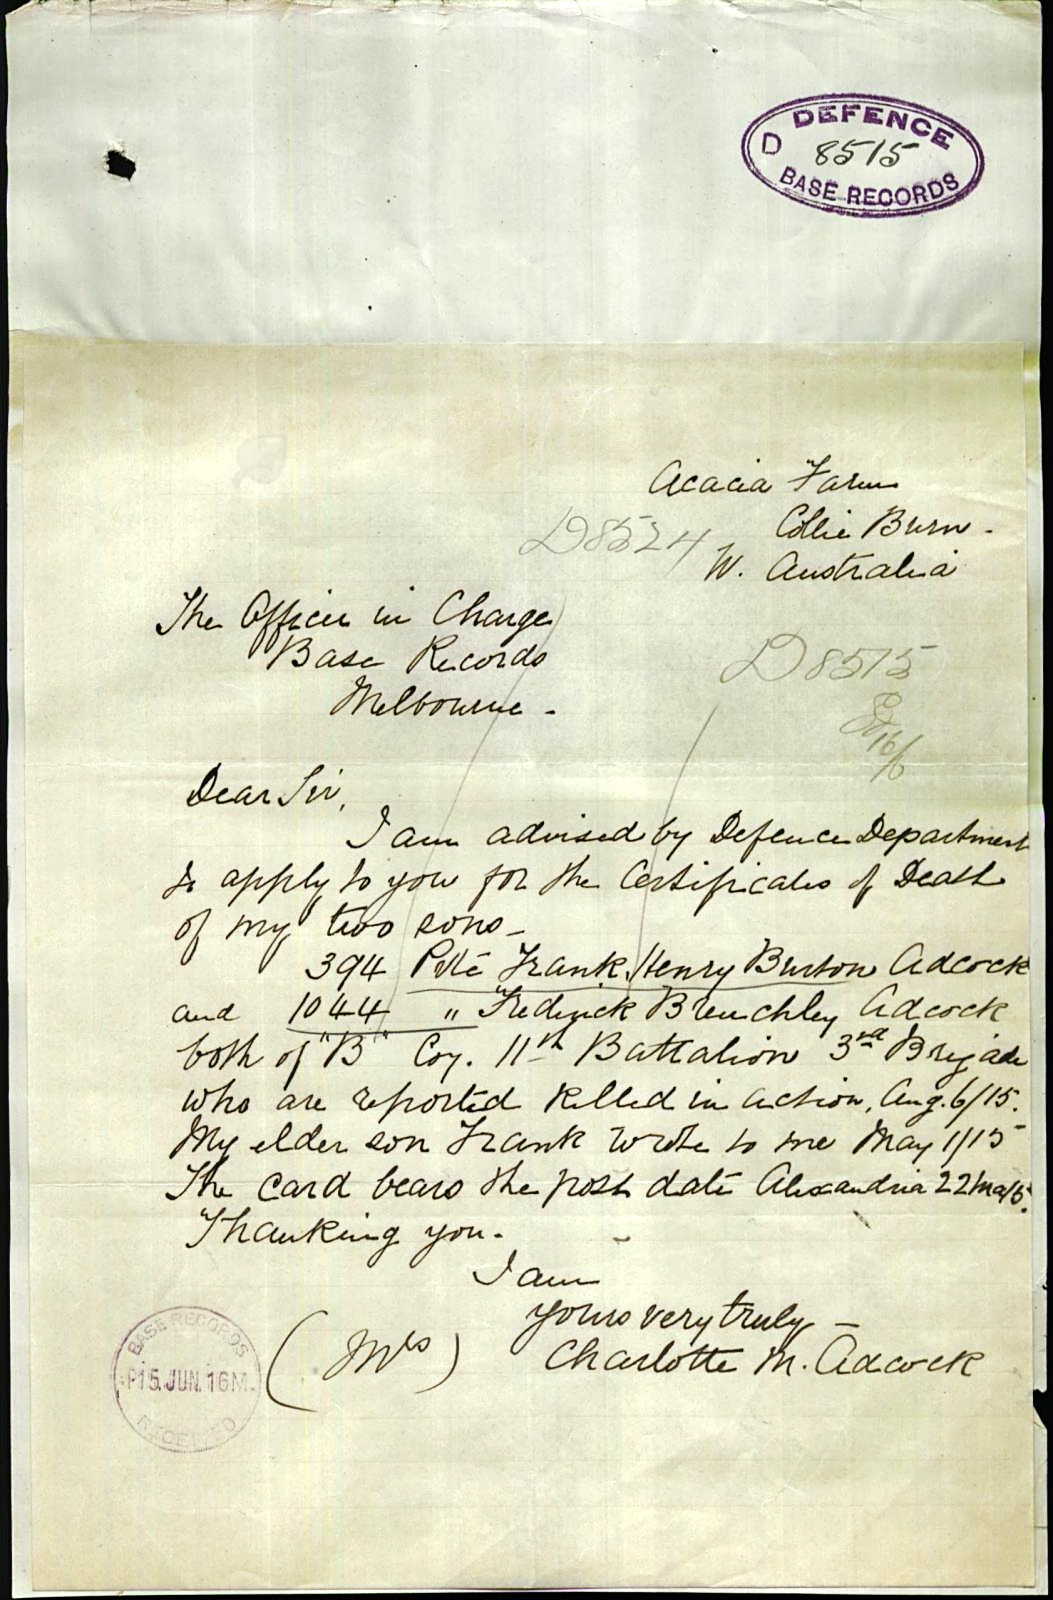 DEFENCE
D 8515
BASE RECORDS
Acacia Farm
Collie Burn -
D8524
W. Australia
The Officer in Charge
Base Records
Melbourne -
D8515
16/6
Dear Sir,
I am advised by Defence Department
to apply to you for the Certificates of Death
of my two sons -
394 Pte Frank Henry Burton Adcock
and 1044 " Frederick Brenchley Adcock
both of "B" Coy. 11th Battalion 3rd Brigade
who are reported killed in action, Aug. 6/15.
My elder son Frank wrote to me May 1/15
The card bears the post date Alexandria 22 Ma 15.
Thanking you.
I am
yours very truly -
(Mrs) Charlotte M. Adcock
BASE RECORDS
P15.JUN.16M.
RECEIVED